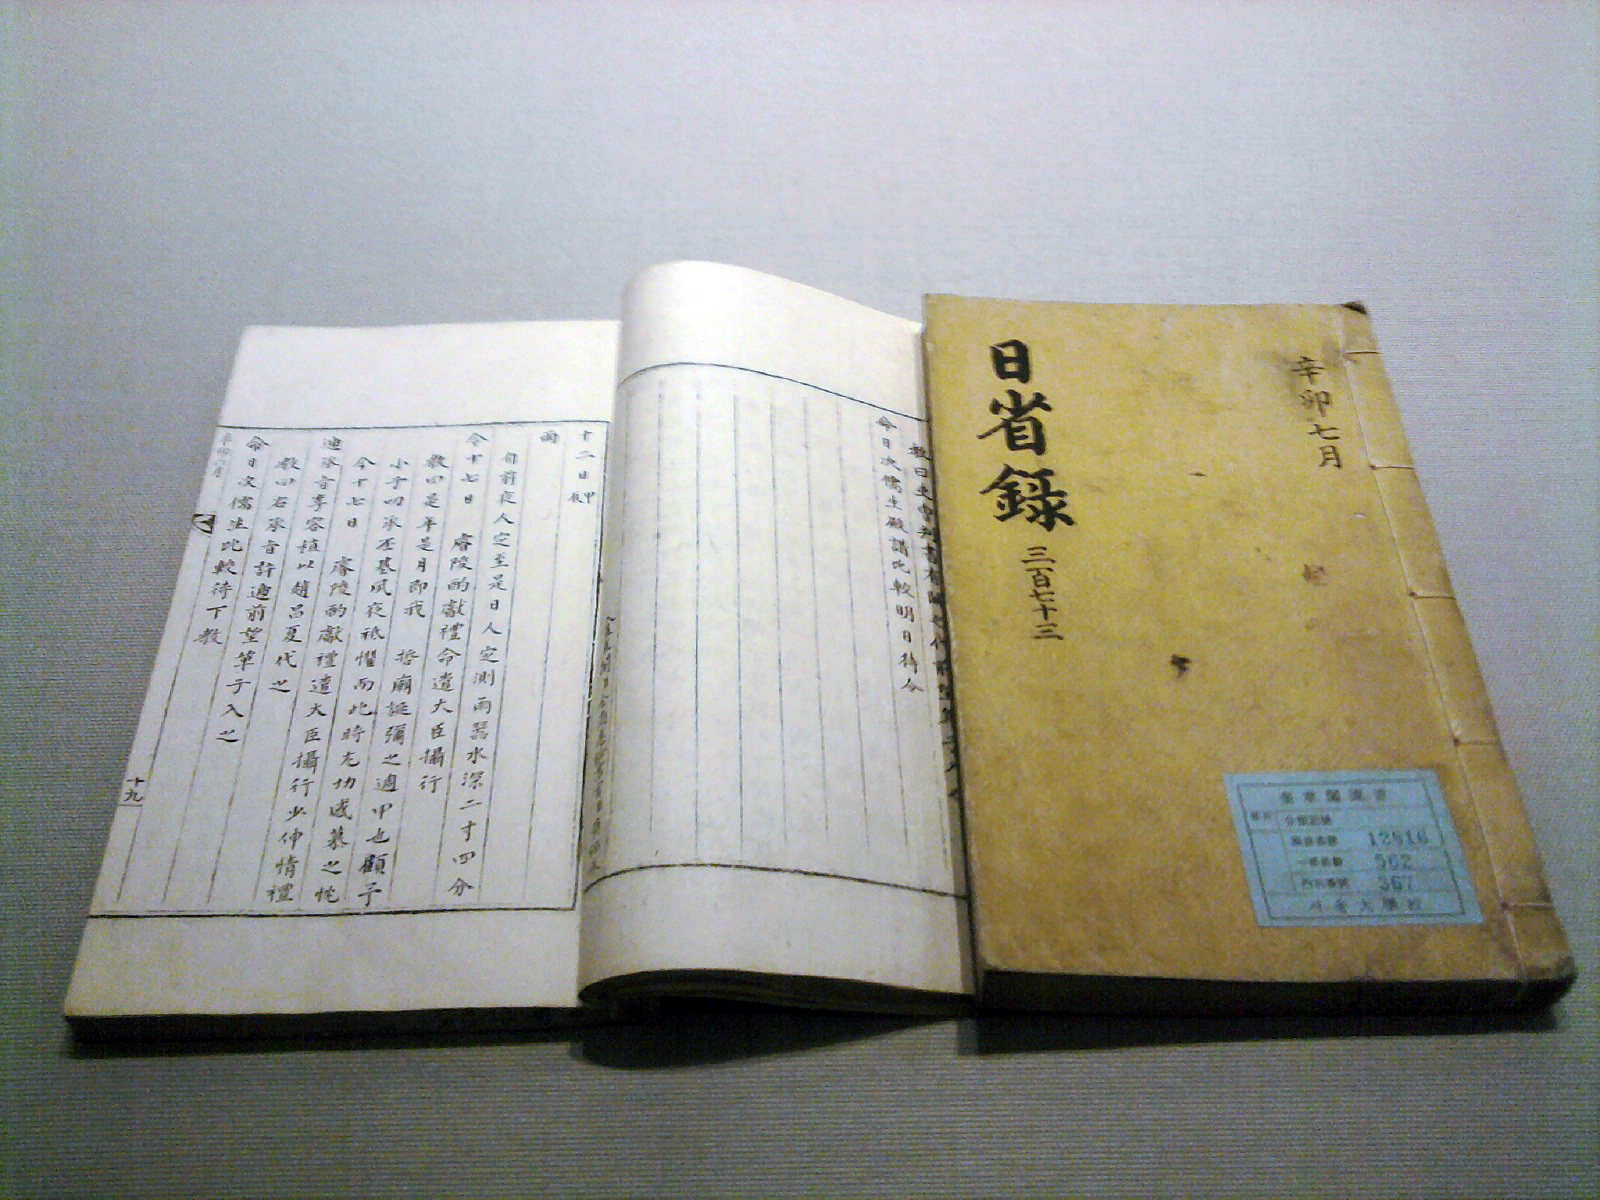 日省錄
三百七十三
辛卯七月
奎章閣圖書
12816
562
367
서울大學校
命日次儒生殿講比較明日待令
十二日甲辰
雨
自前夜人定至是日人定測雨器水深二寸四分
令十七日 睿陵酌獻禮命遣大臣攝行
敎曰是年是月卽我 哲廟誕彌之週甲也顧予
小子叨承丕基夙夜祗懼而此時尤切感慕之忱
今十七日 睿陵酌獻禮遣大臣攝行少伸情禮
遞承旨李容稙以趙昌夏代之
敎曰右承旨許遞前望單子入之
命日次儒生比較待下敎
辛卯六月
十九